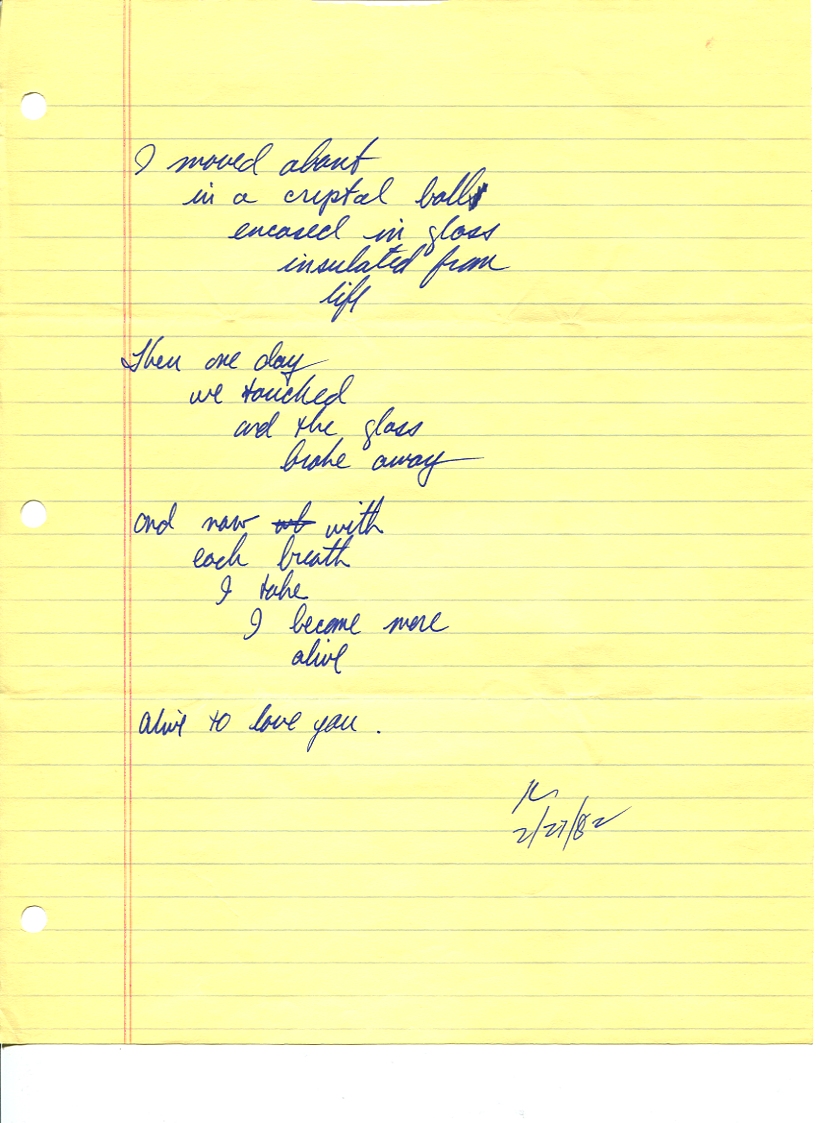 I moved about
in a crystal ball
encased in glass
insulated from
life
Then one day
we touched
and the glass
broke away
and now with
each breath
I take
I become more
alive
alive to love you.
2/27/82